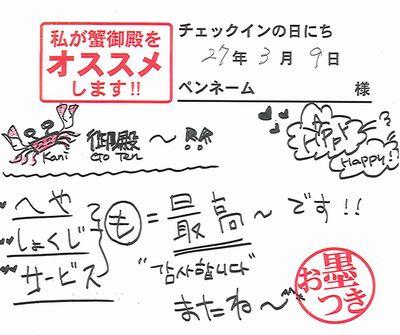 私が蟹御殿を
オススメ
します!!
チェックインの日にち
27年3月9日
ペンネーム 様
Kani
御殿~!!
Goten
Happy
Happy!
へや
しょくじ
サービス
も=最高~です!!
"감사합니다"
またね~
お墨つき